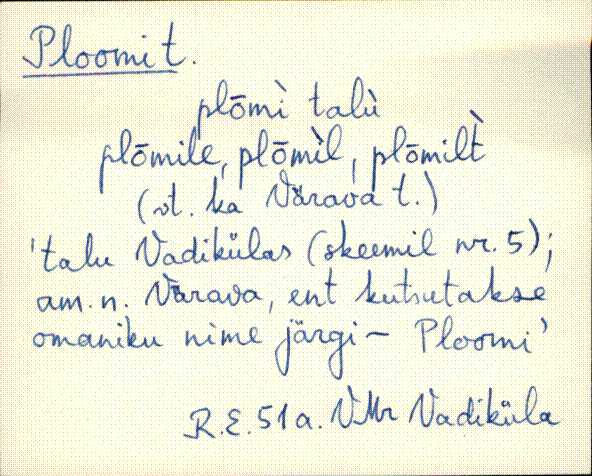 Ploomi t.
plōmì talù
plōmile, plōmìl, plōmilt̀
(vt. ka Värava t.)
'talu Vadikülas (skeemil nr. 5);
am. n. Värava, ent kutsutakse
omaniku nime järgi – Ploomi'
R.E. 51 a. VMr Vadiküla